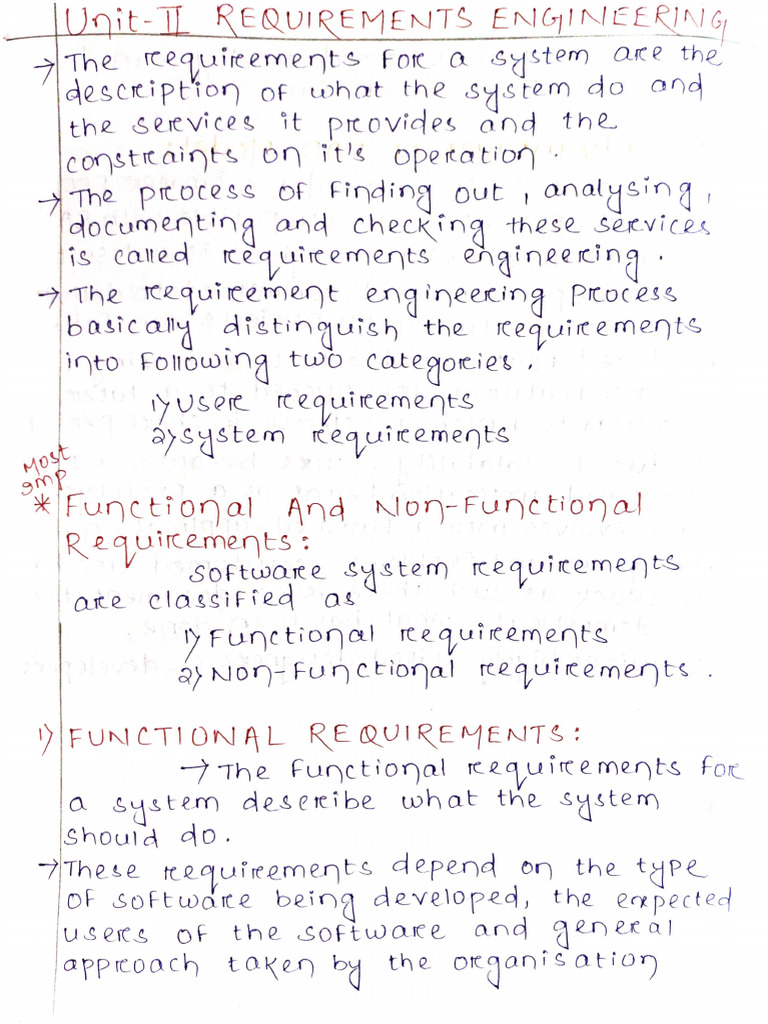 Unit-II REQUIREMENTS ENGINEERING
→ The requirements for a system are the
description of what the system do and
the services it provides and the
constraints on it's operation.
→ The process of finding out, analysing,
documenting and checking these services
is called requirements engineering.
→ The requirement engineering process
basically distinguish the requirements
into following two categories.
1) User requirements
2) System requirements
Most
Imp
* Functional And Non-Functional
Requirements:
Software system requirements
are classified as
1) Functional requirements
2) Non-Functional requirements.
1) FUNCTIONAL REQUIREMENTS:
→ The functional requirements for
a system describe what the system
should do.
→ These requirements depend on the type
of software being developed, the expected
users of the software and general
approach taken by the organisation